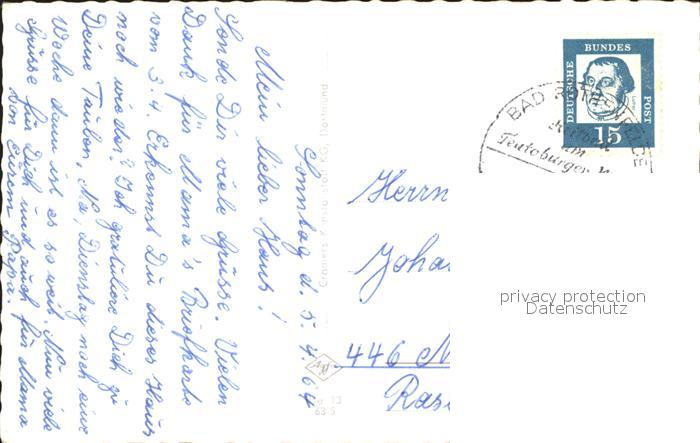 Sonntag d. 5.4.64
Mein lieber Hans!
Sende Dir viele Grüsse. Vielen
Dank für Mama's Briefkarte
vom 3.4. Erkennst Du dieses Haus
noch wieder? Ich gratuliere Dich zu
Deine Tauben, Na, Dienstag noch eine
Woche dann ist es so weit. Nun viele
Grüsse für Dich und auch für Mama
von Euren Papa.
Cramers Kunstanstalt KG, Dortmund
13
63 5
DEUTSCHE
BUNDES
POST
15
BAD ROTHENFELDE
am
Teutoburger
Herrn
Joha
446 N
Rase
privacy protection
Datenschutz